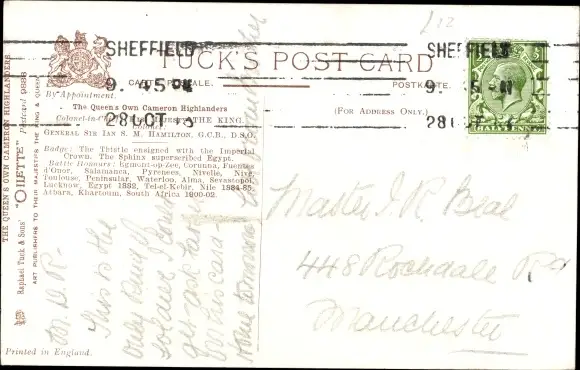 SHEFFIELD
9. 45 PM
28 OCT 15
TUCK'S POST CARD
CARTE POSTALE.
POSTKARTE.
By Appointment.
(FOR ADDRESS ONLY.)
The Queen's Own Cameron Highlanders
Colonel-in-Chief: HIS MAJESTY THE KING.
Colonel:
GENERAL SIR IAN S. M. HAMILTON, G.C.B., D.S.O.
Badge: The Thistle ensigned with the Imperial
Crown. The Sphinx superscribed Egypt.
Battle Honours: Egmont-op-Zee, Corunna, Fuentes
d'Onor, Salamanca, Pyrenees, Nivelle, Nive,
Toulouse, Peninsular, Waterloo, Alma, Sevastopol,
Lucknow, Egypt 1882, Tel-el-Kebir, Nile 1884-85,
Atbara, Khartoum, South Africa 1900-02.
THE QUEEN'S OWN CAMERON HIGHLANDERS
Raphael Tuck & Sons' "OILETTE" Postcard 9886
ART PUBLISHERS TO THEIR MAJESTIES THE KING & QUEEN
Printed in England.
SHEFFIELD
9. 45 PM
28 OCT 15
HALFPENNY
£12
M. D. R-
This is the
only kind of
soldier I could
get
on his card -
Home tomorrow
Master J. R. Beal
448 Rochdale Rd
Manchester